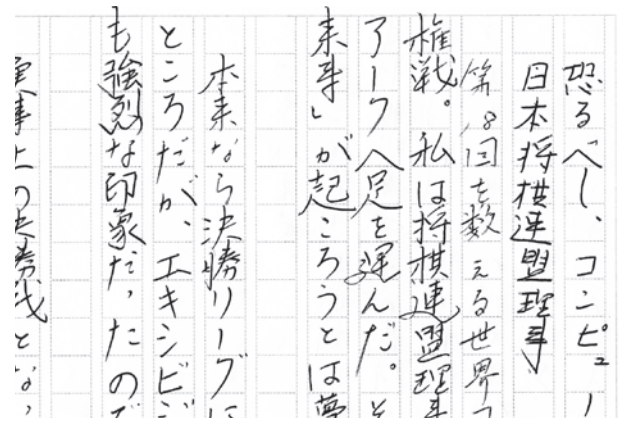 恐るべし、コンピュー
日本将棋連盟理事
第18回を数える世界コ
権戦。私は将棋連盟理事
アークへ足を運んだ。そ
来事」が起ころうとは夢
本来なら決勝リーグに
ところだが、エキシビジ
も強烈な印象だったので
実事上の決勝戦とな